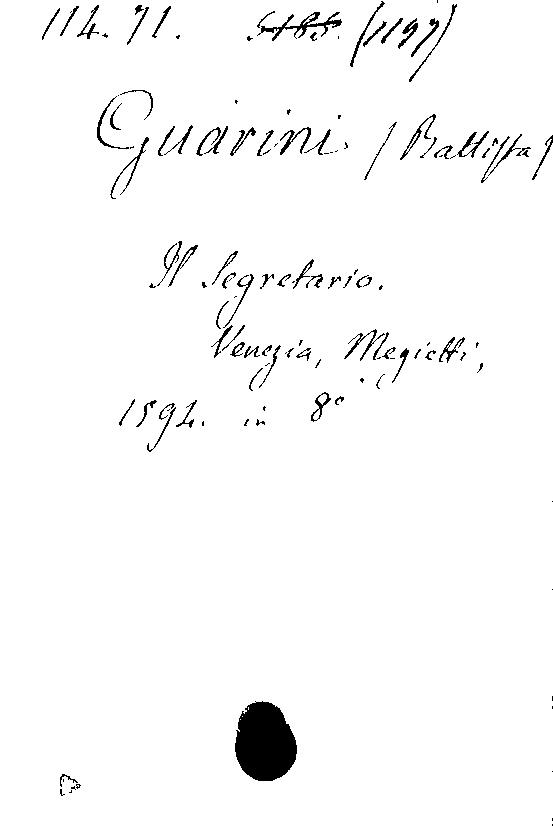 114. 71. (1197)
Guarini (Battista)
Il Segretario.
Venezia, Megietti,
1594. in 8°